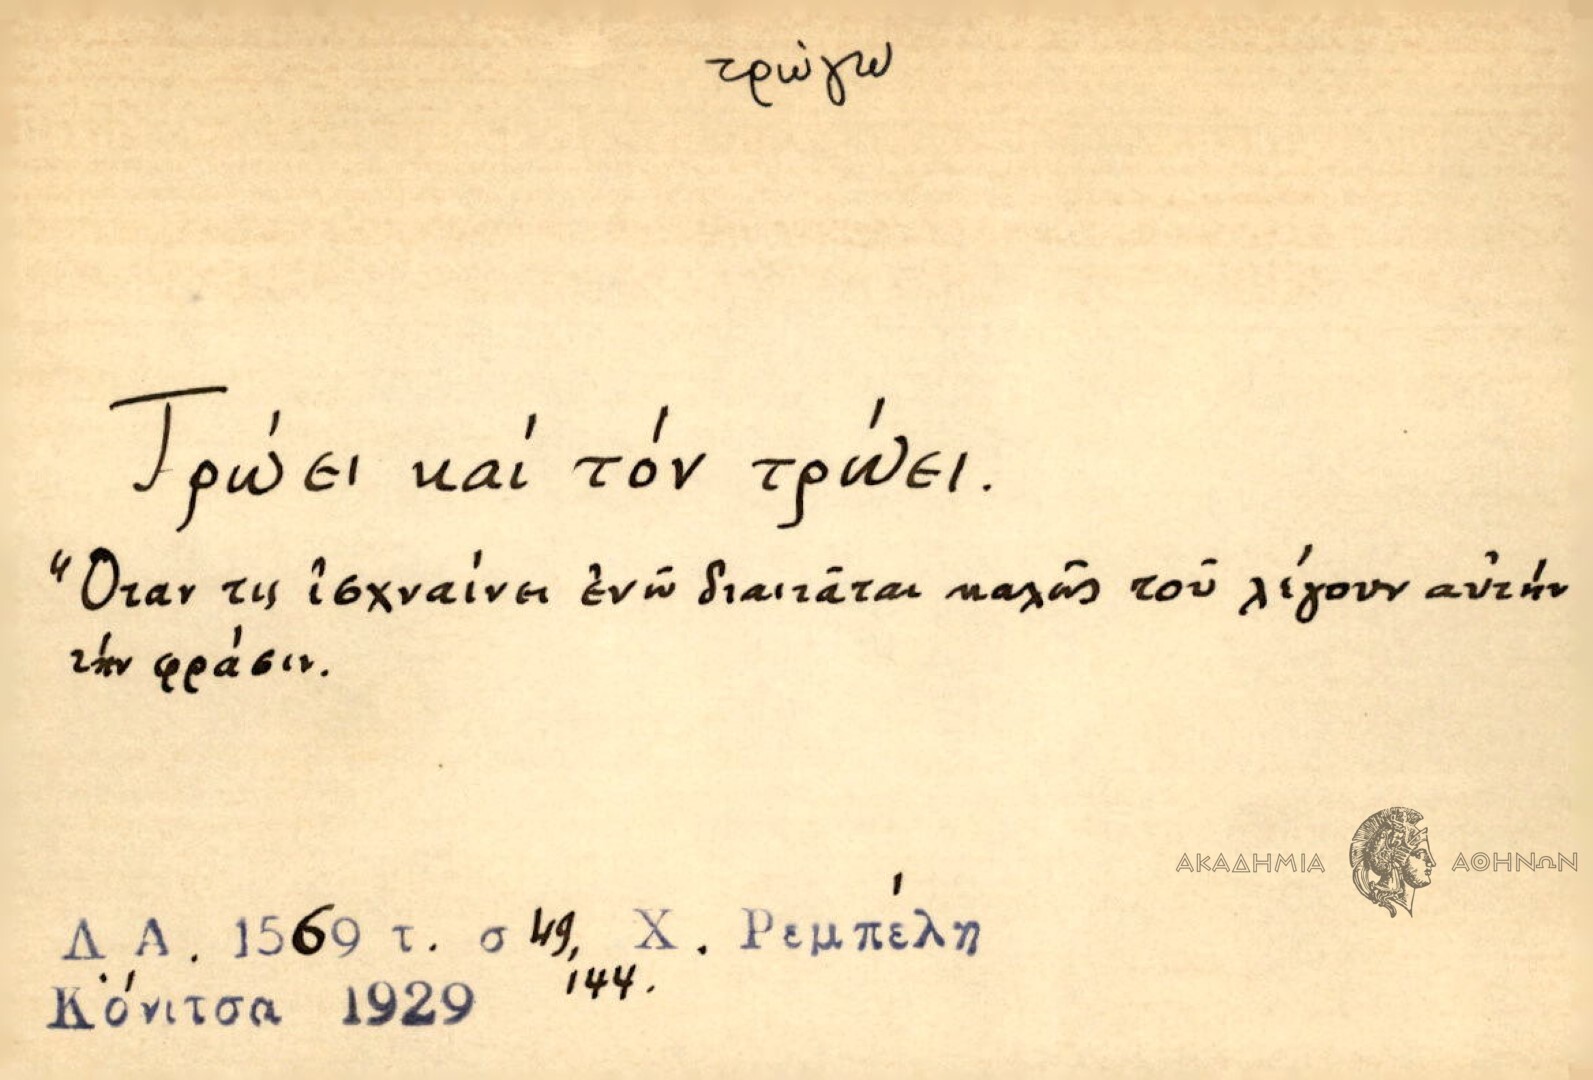 τρώγω
Τρώει καί τόν τρώει.
Ὅταν τις ἰσχναίνει ἐνῶ διαιτᾶται καλῶς τοῦ λέγουν αὐτήν
τήν φράσιν.
ΑΚΑΔΗΜΙΑ ΑΘΗΝΩΝ
Λ Α. 1569 τ. σ 49, Χ. Ρεμπέλη
144.
Κόνιτσα 1929